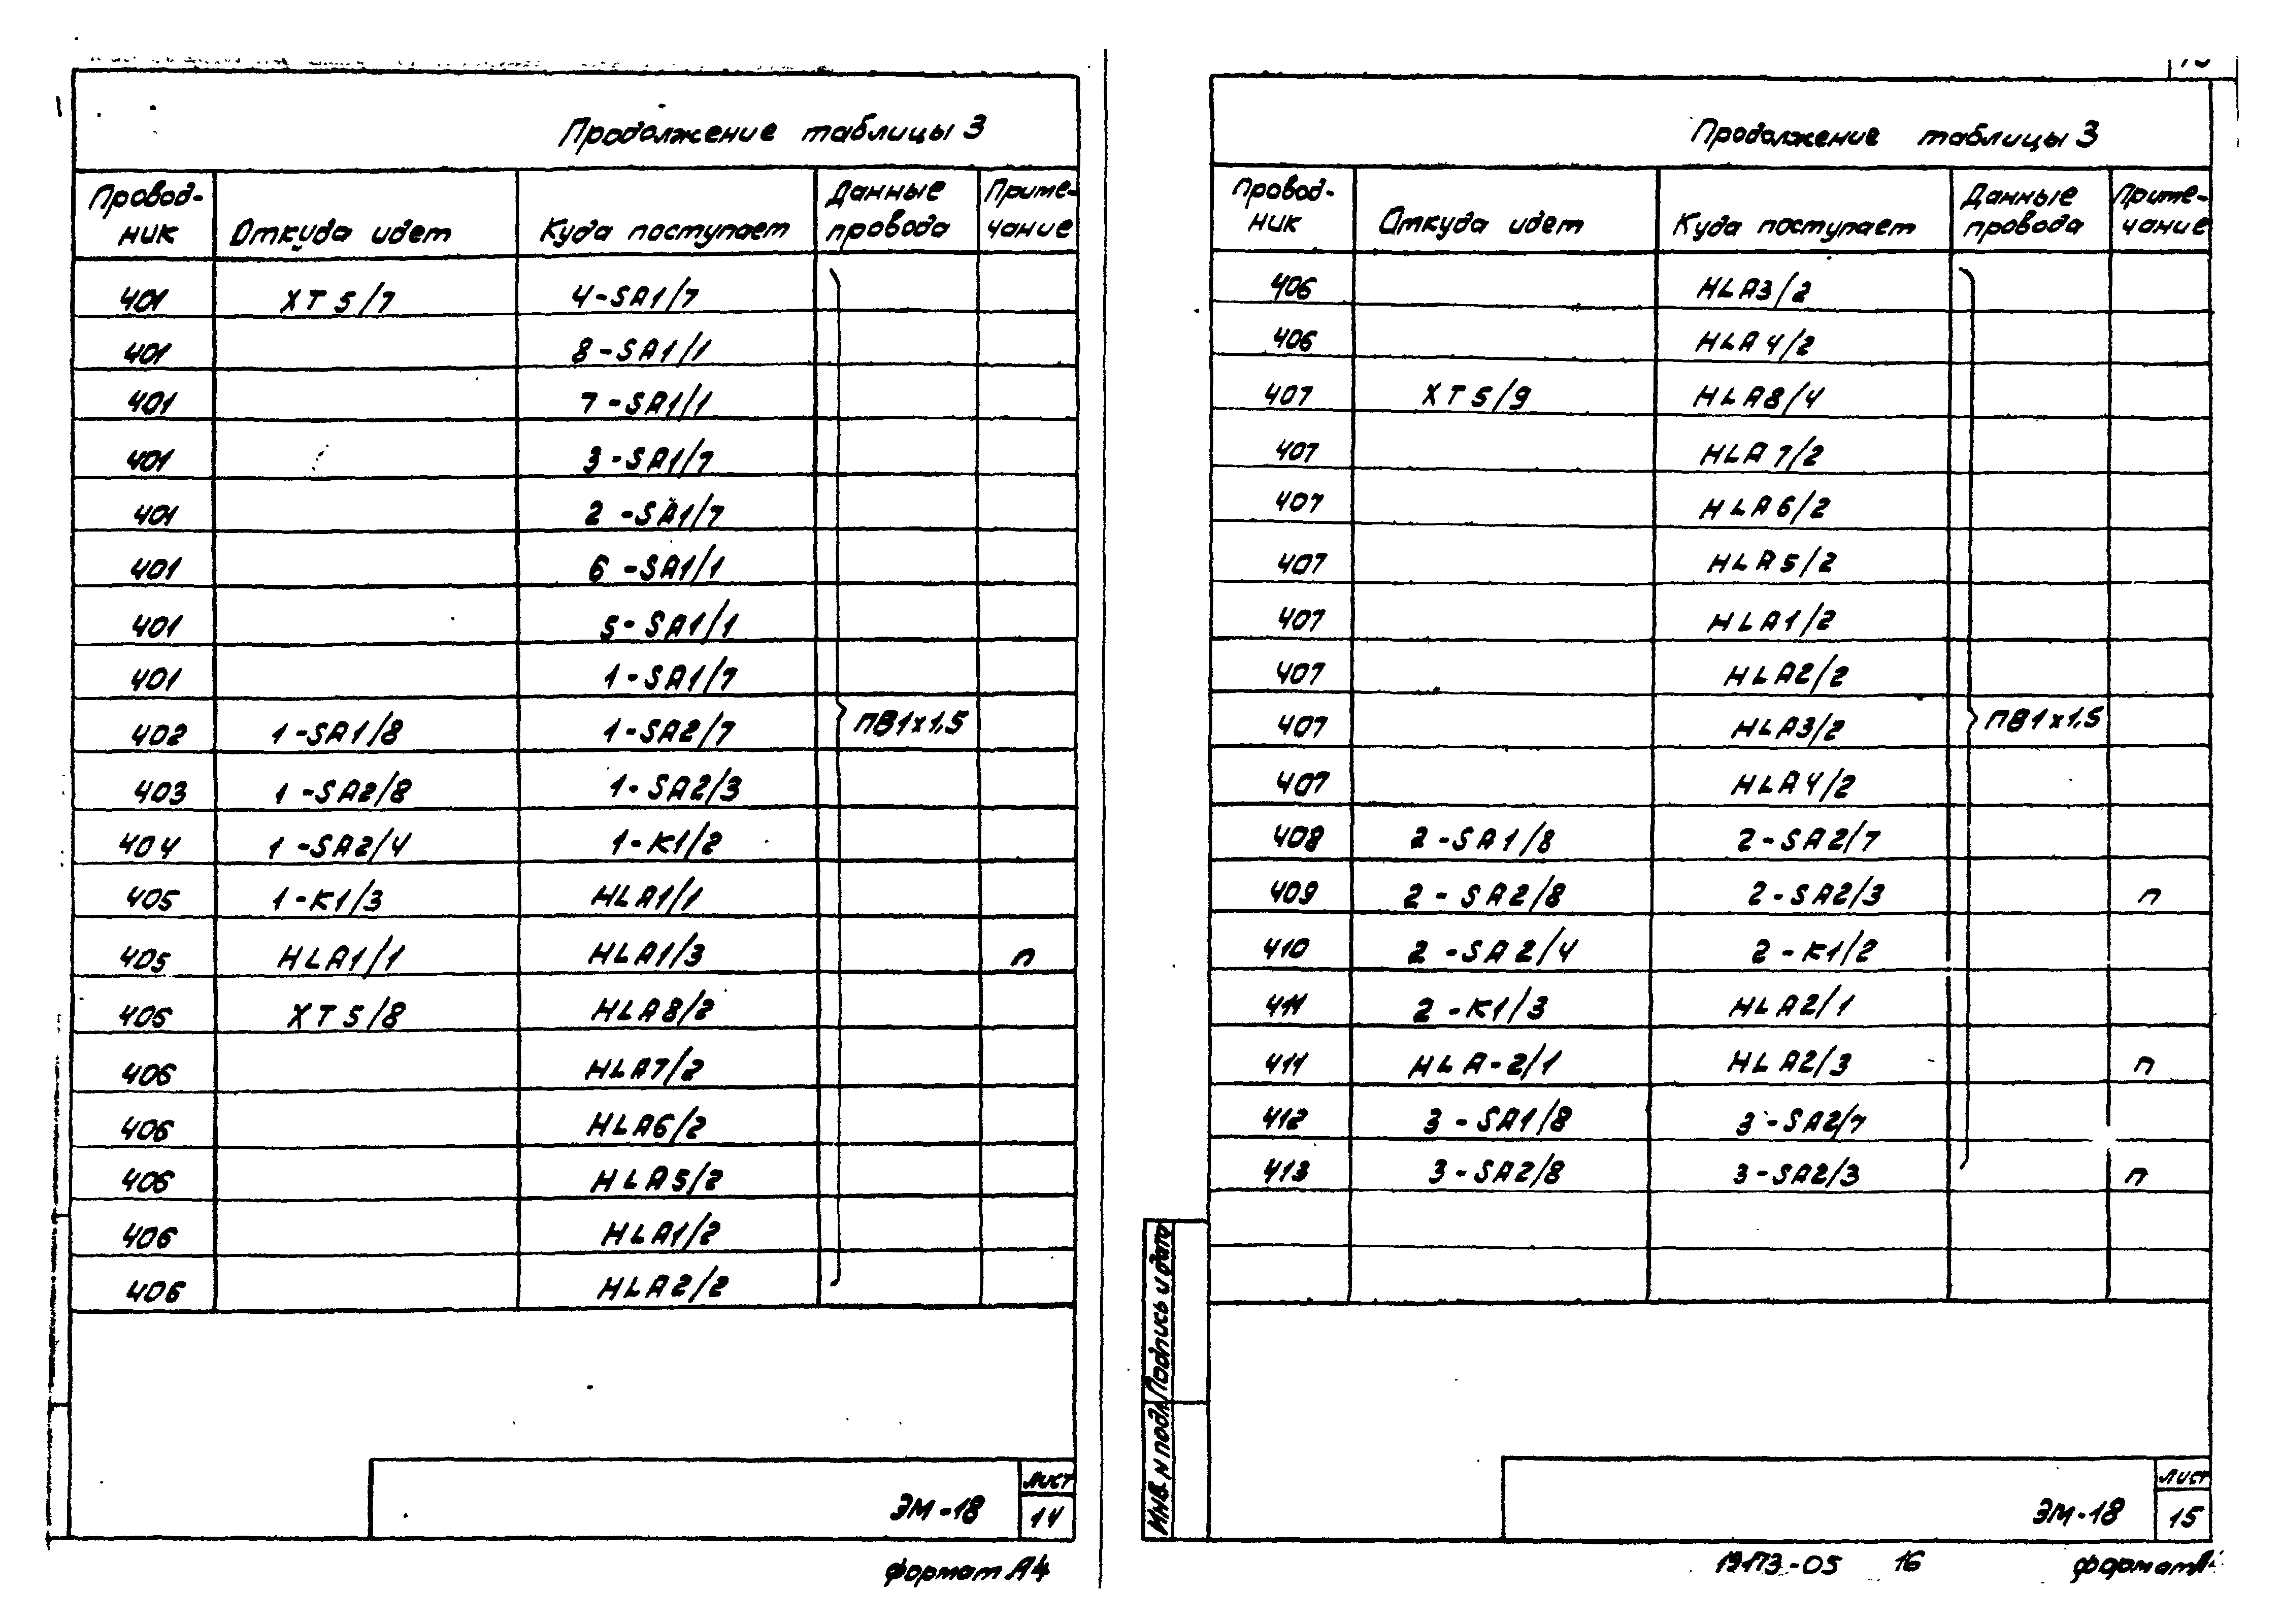 Продолжение таблицы 3
Провод-ник Откуда идет Куда поступает Данные провода Приме-чание
401 XT5/7 4-SA1/7
401 8-SA1/1
401 7-SA1/1
401 3-SA1/7
401 2-SA1/7
401 6-SA1/1
401 5-SA1/1
401 1-SA1/7
402 1-SA1/8 1-SA2/7 ПВ1х1,5
403 1-SA2/8 1-SA2/3
404 1-SA2/4 1-K1/2
405 1-K1/3 HLA1/1
405 HLA1/1 HLA1/3 п
406 XT5/8 HLA8/2
406 HLA7/2
406 HLA6/2
406 HLA5/2
406 HLA1/2
406 HLA2/2
ЭМ-18
Лист
14
Формат А4
Продолжение таблицы 3
Провод-ник Откуда идет Куда поступает Данные провода Приме-чание
406 HLA3/2
406 HLA4/2
407 XT5/9 HLA8/4
407 HLA7/2
407 HLA6/2
407 HLA5/2
407 HLA1/2
407 HLA2/2
407 HLA3/2 ПВ1х1,5
407 HLA4/2
408 2-SA1/8 2-SA2/7
409 2-SA2/8 2-SA2/3 п
410 2-SA2/4 2-K1/2
411 2-K1/3 HLA2/1
411 HLA-2/1 HLA2/3 п
412 3-SA1/8 3-SA2/7
413 3-SA2/8 3-SA2/3 п
Инв. N подл. Подпись и дата
ЭМ-18
Лист
15
19173-05 16 Формат